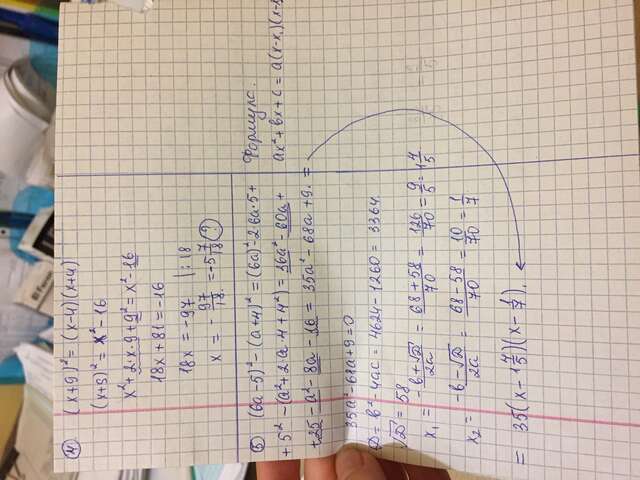 ④ (x+9)² = (x-4)(x+4)
(x+9)² = x² - 16
x² + 2·x·9 + 9² = x² - 16
18x + 81 = -16
18x = -97 |:18
x = - 97/18 = -5 7/18 ?
⑤ (6a-5)² - (a+4)² = (6a)² - 2·6a·5 +
+ 5² - (a² + 2·a·4 + 4²) = 36a² - 60a +
+ 25 - a² - 8a - 16 = 35a² - 68a + 9. =
Формула.
ax² + bx + c = a(x-x₁)(x-
35a² - 68a + 9 = 0
D = b² - 4ac = 4624 - 1260 = 3364.
√D = 58
x₁ = -b+√D/2a = 68+58/70 = 126/70 = 9/5 = 1 4/5
x₂ = -b-√D/2a = 68-58/70 = 10/70 = 1/7
= 35(x - 1 4/5)(x - 1/7).